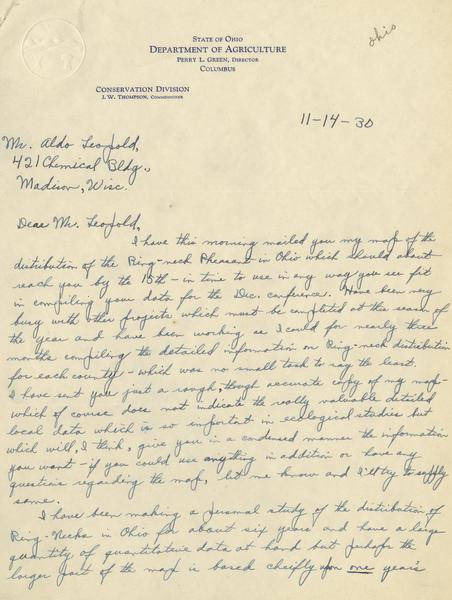 Ohio
STATE OF OHIO
DEPARTMENT OF AGRICULTURE
PERRY L. GREEN, DIRECTOR
COLUMBUS
CONSERVATION DIVISION
J. W. THOMPSON, COMMISSIONER
11-14-30
Mr. Aldo Leopold,
421 Chemical Bldg.,
Madison, Wisc.
Dear Mr. Leopold,
I have this morning mailed you my map of the
distribution of the Ring-neck Pheasant in Ohio which should about
reach you by the 15th - in time to use in any way you see fit
in compiling your data for the Dec. conference. Have been very
busy with other projects which must be completed at this season of
the year and have been working as I could for nearly three
months compiling the detailed information on Ring-neck distribution
for each county - which was no small task to say the least.
I have sent you just a rough, though accurate copy of my map -
which of course does not indicate the really valuable detailed
local data which is so important in ecological studies but
which will, I think, give you in a condensed manner the information
you want - if you could use anything in addition or have any
questions regarding the map, let me know and I'll try to supply
same.
I have been making a personal study of the distribution of
Ring-Necks in Ohio for about six years and have a large
quantity of quantitative data at hand but perhaps the
larger part of the map is based cheifly upon one year's